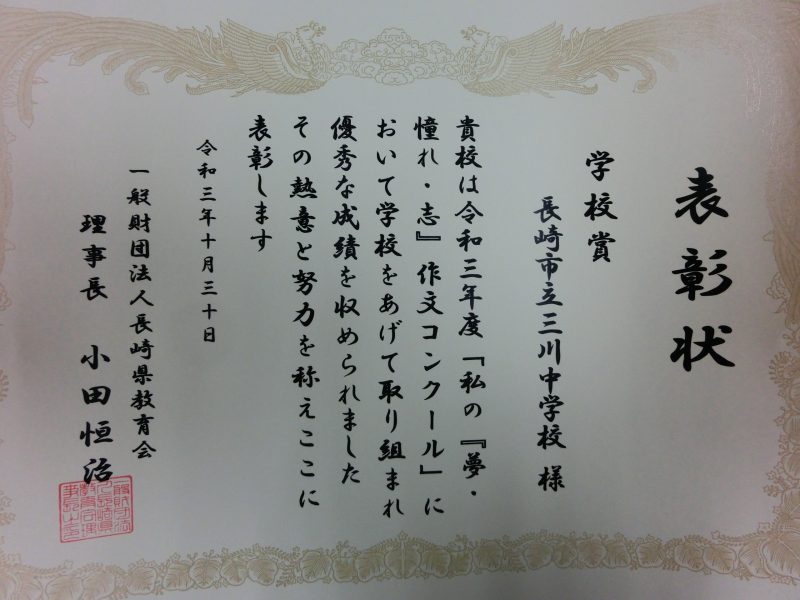 表彰状
学校賞
長崎市立三川中学校 様
貴校は令和三年度「私の『夢・
憧れ・志』作文コンクール」に
おいて学校をあげて取り組まれ
優秀な成績を収められました
その熱意と努力を称えここに
表彰します
令和三年十月三十日
一般財団法人長崎県教育会
理事長 小田恒治